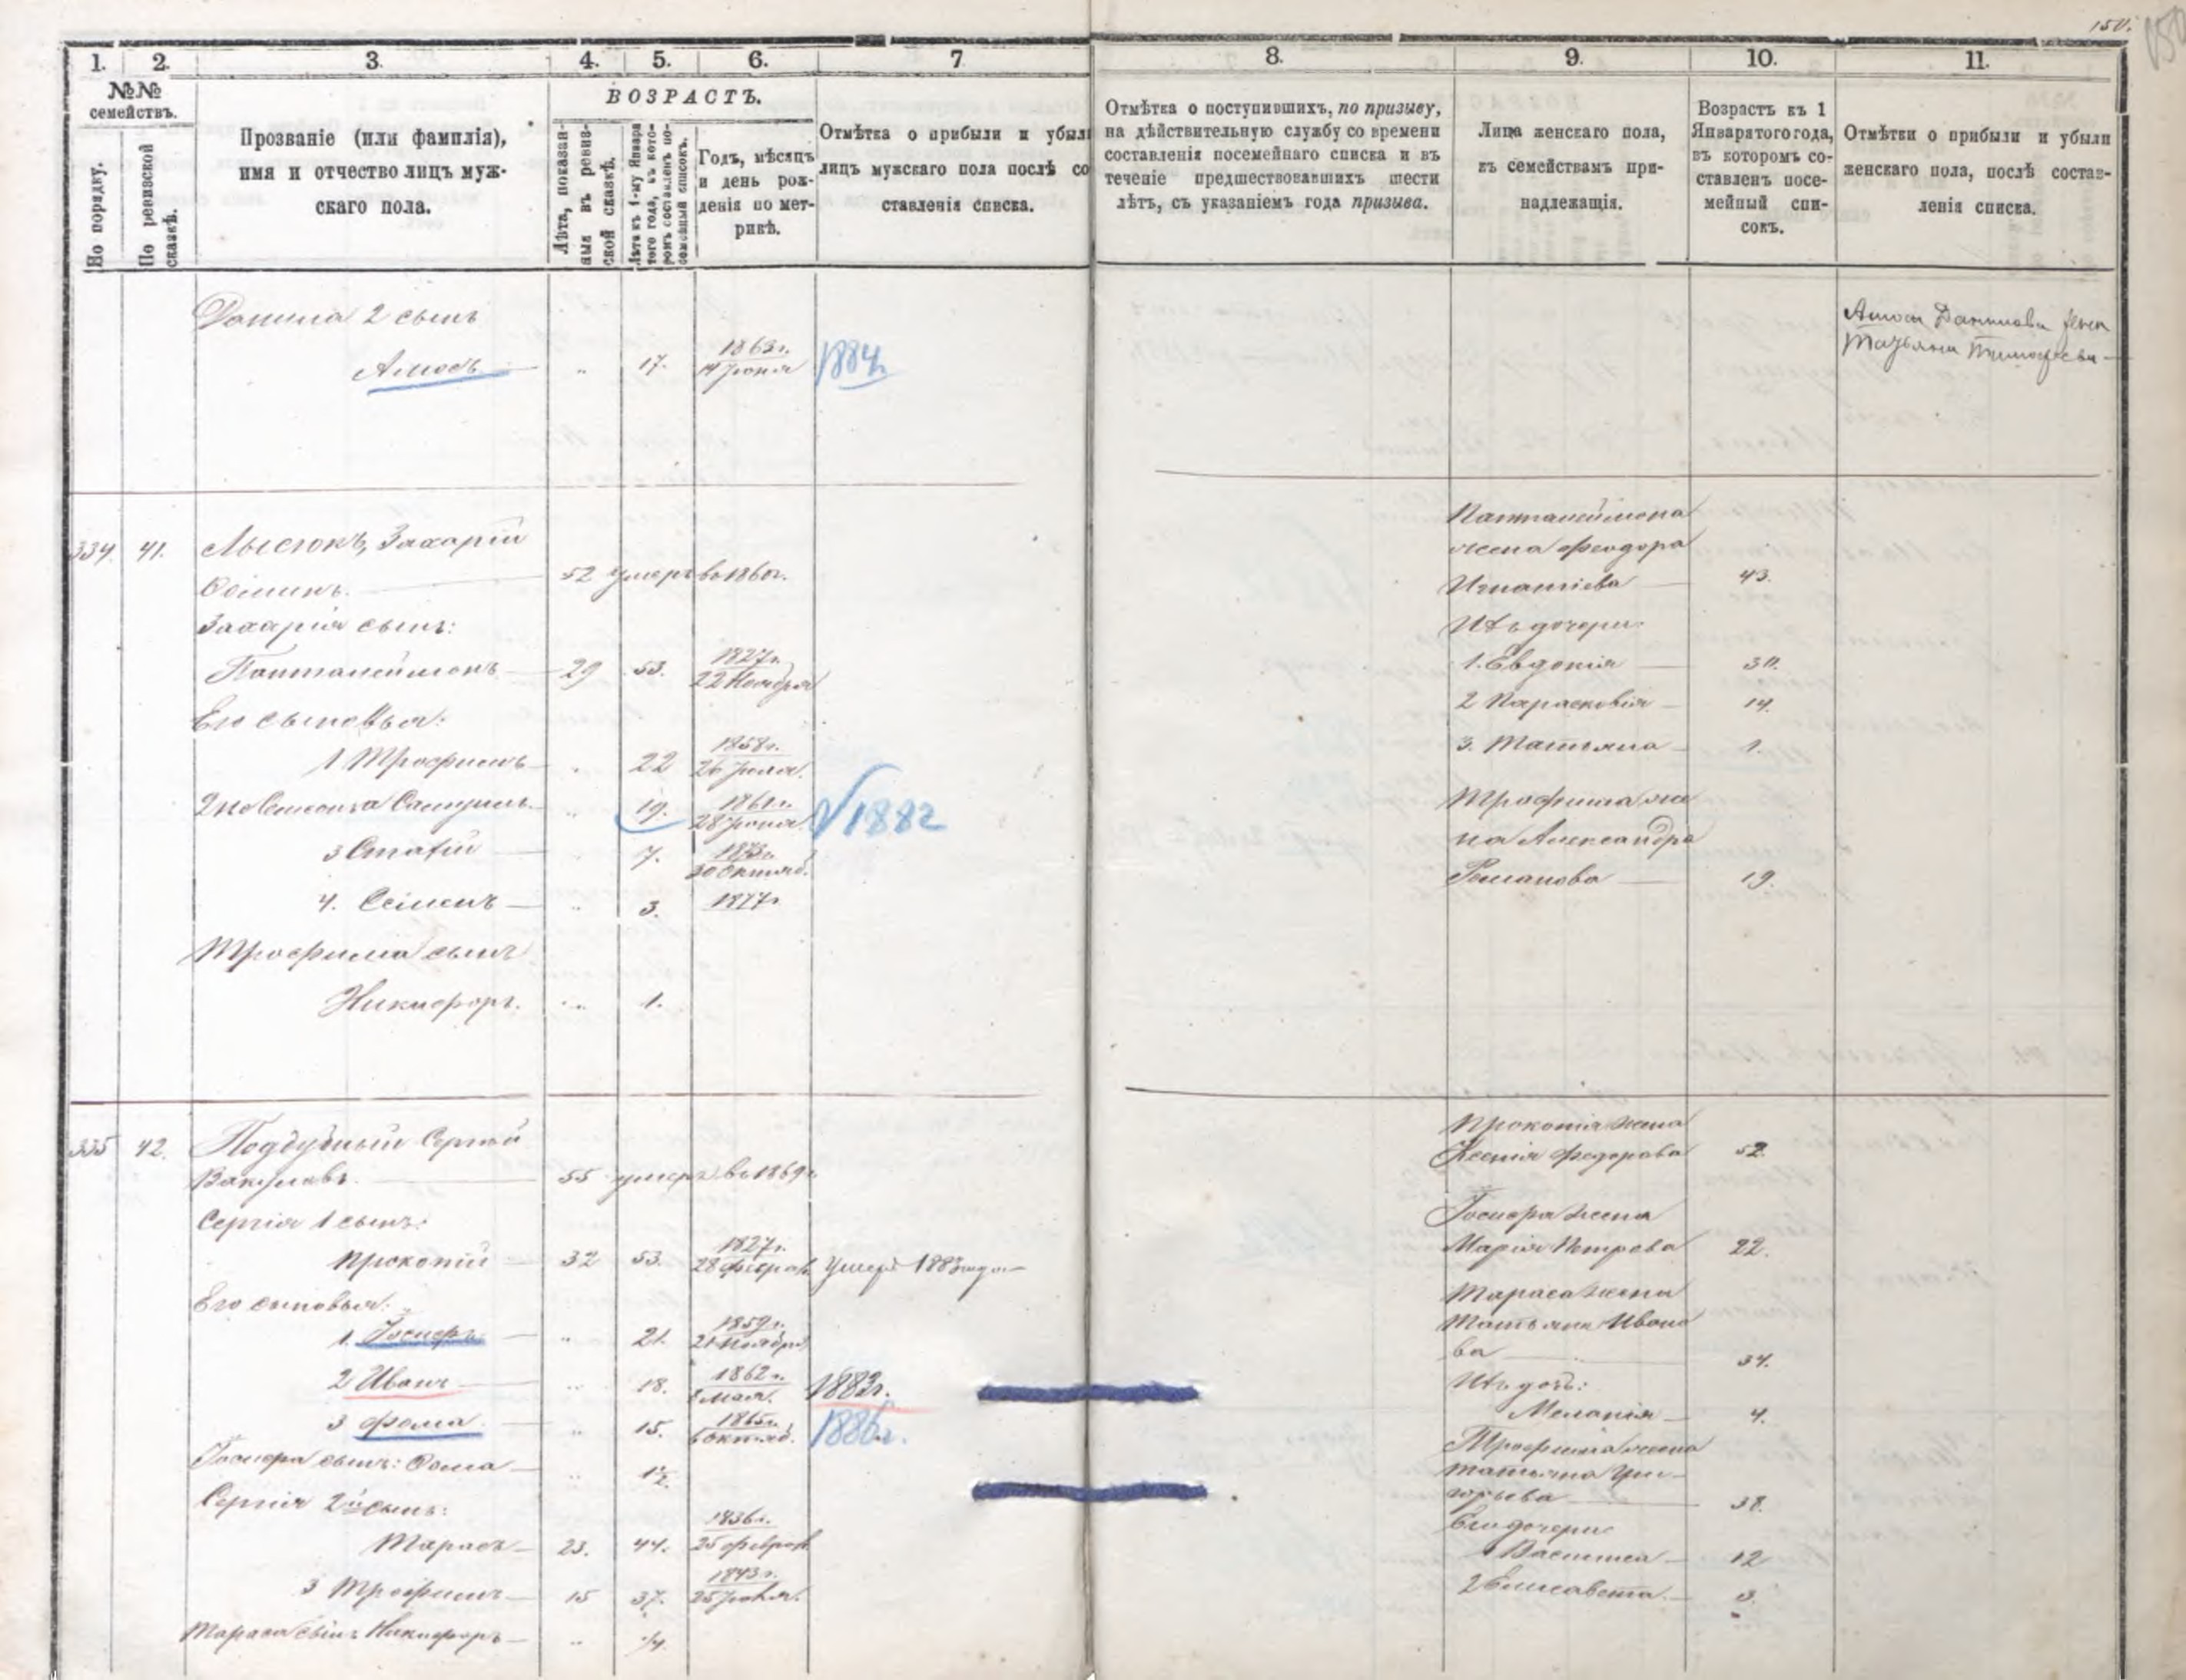 150.
1.
2.
3.
4.
5.
6.
7
8.
9.
10.
11.
№№
семействъ.
По порядку.
По ревизской
сказкѣ.
Прозваніе (или фамилія),
имя и отчество лицъ муж-
скаго пола.
ВОЗРАСТЪ.
Лѣта, показан-
ныя въ ревиз-
ской сказкѣ.
Лѣта къ 1-му Января
того года, въ кото-
ромъ составленъ по-
семейный списокъ.
Годъ, мѣсяцъ
и день рож-
денія по мет-
рикѣ.
Отмѣтка о прибыли и убыли
лицъ мужскаго пола послѣ со
ставленія списка.
Отмѣтка о поступившихъ, по призыву,
на дѣйствительную службу со времени
составленія посемейнаго списка и въ
теченіе предшествовавшихъ шести
лѣтъ, съ указаніемъ года призыва.
Лица женскаго пола,
къ семействамъ при-
надлежащія.
Возрастъ къ 1
Января того года,
въ которомъ со-
ставленъ посе-
мейный спи-
сокъ.
Отмѣтки о прибыли и убыли
женскаго пола, послѣ состав-
ленія списка.
Данила 2 сынъ
Амосъ 17. 1863г. 1884г
14 Іюня
Амоса Данилова жена
Татьяна Тимофеева
334. 41. Лысюкъ, Захарій
Осіинъ. 52 умеръ въ 1860г.
Захарія сынъ:
Панталеймонъ 29 53. 1827г.
22 Ноября
Его сыновья:
1 Трофимъ 22 1858г.
26 Іюля.
2 19. 1861г. 1882
28 Іюня
3 Статій 7. 1873г.
30 Октяб.
4. Семенъ 3. 1877г
Трофима сынъ
Никифоръ. 1.
Панталеймона
жена Феодора
Игнатіева 43.
Ихъ дочери:
1. Евдокія
2 Парасковія 14.
3. Татьяна 1.
Трофима же
на Александра
Романова 19.
335 42. Поддубный Сергій
Вакуловъ. 55 умеръ въ 1869г
Сергія 1 сынъ:
Прокопій 32 53. 1827г. Умеръ 1883 года
28 Феврал.
Его сыновья:
1. Іосифъ 21. 1859г.
21 Ноября
2 Иванъ 18. 1862г. 1883г.
8 мая.
3 Фома 15. 1865г. 1886г.
6 Октяб.
Іосифа сынъ: Фома 1/2.
Сергія 2й сынъ:
Тарасъ 23. 44. 1836г.
25 Феврал
3 Трофимъ 15 37. 1843г.
25 Іюля.
Тараса сынъ Никифоръ 1/4.
Прокопія жена
Ксенія Федорова 52.
Іосифа жена
Марія Петрова 22.
Тараса жена
Татьяна Ивано
ва 34.
Ихъ дочь:
Меланія 4.
Трофима жена
Татьяна Гри-
горьева 38.
Его дочери
1 Василиса 12
2 Елисавета 3.